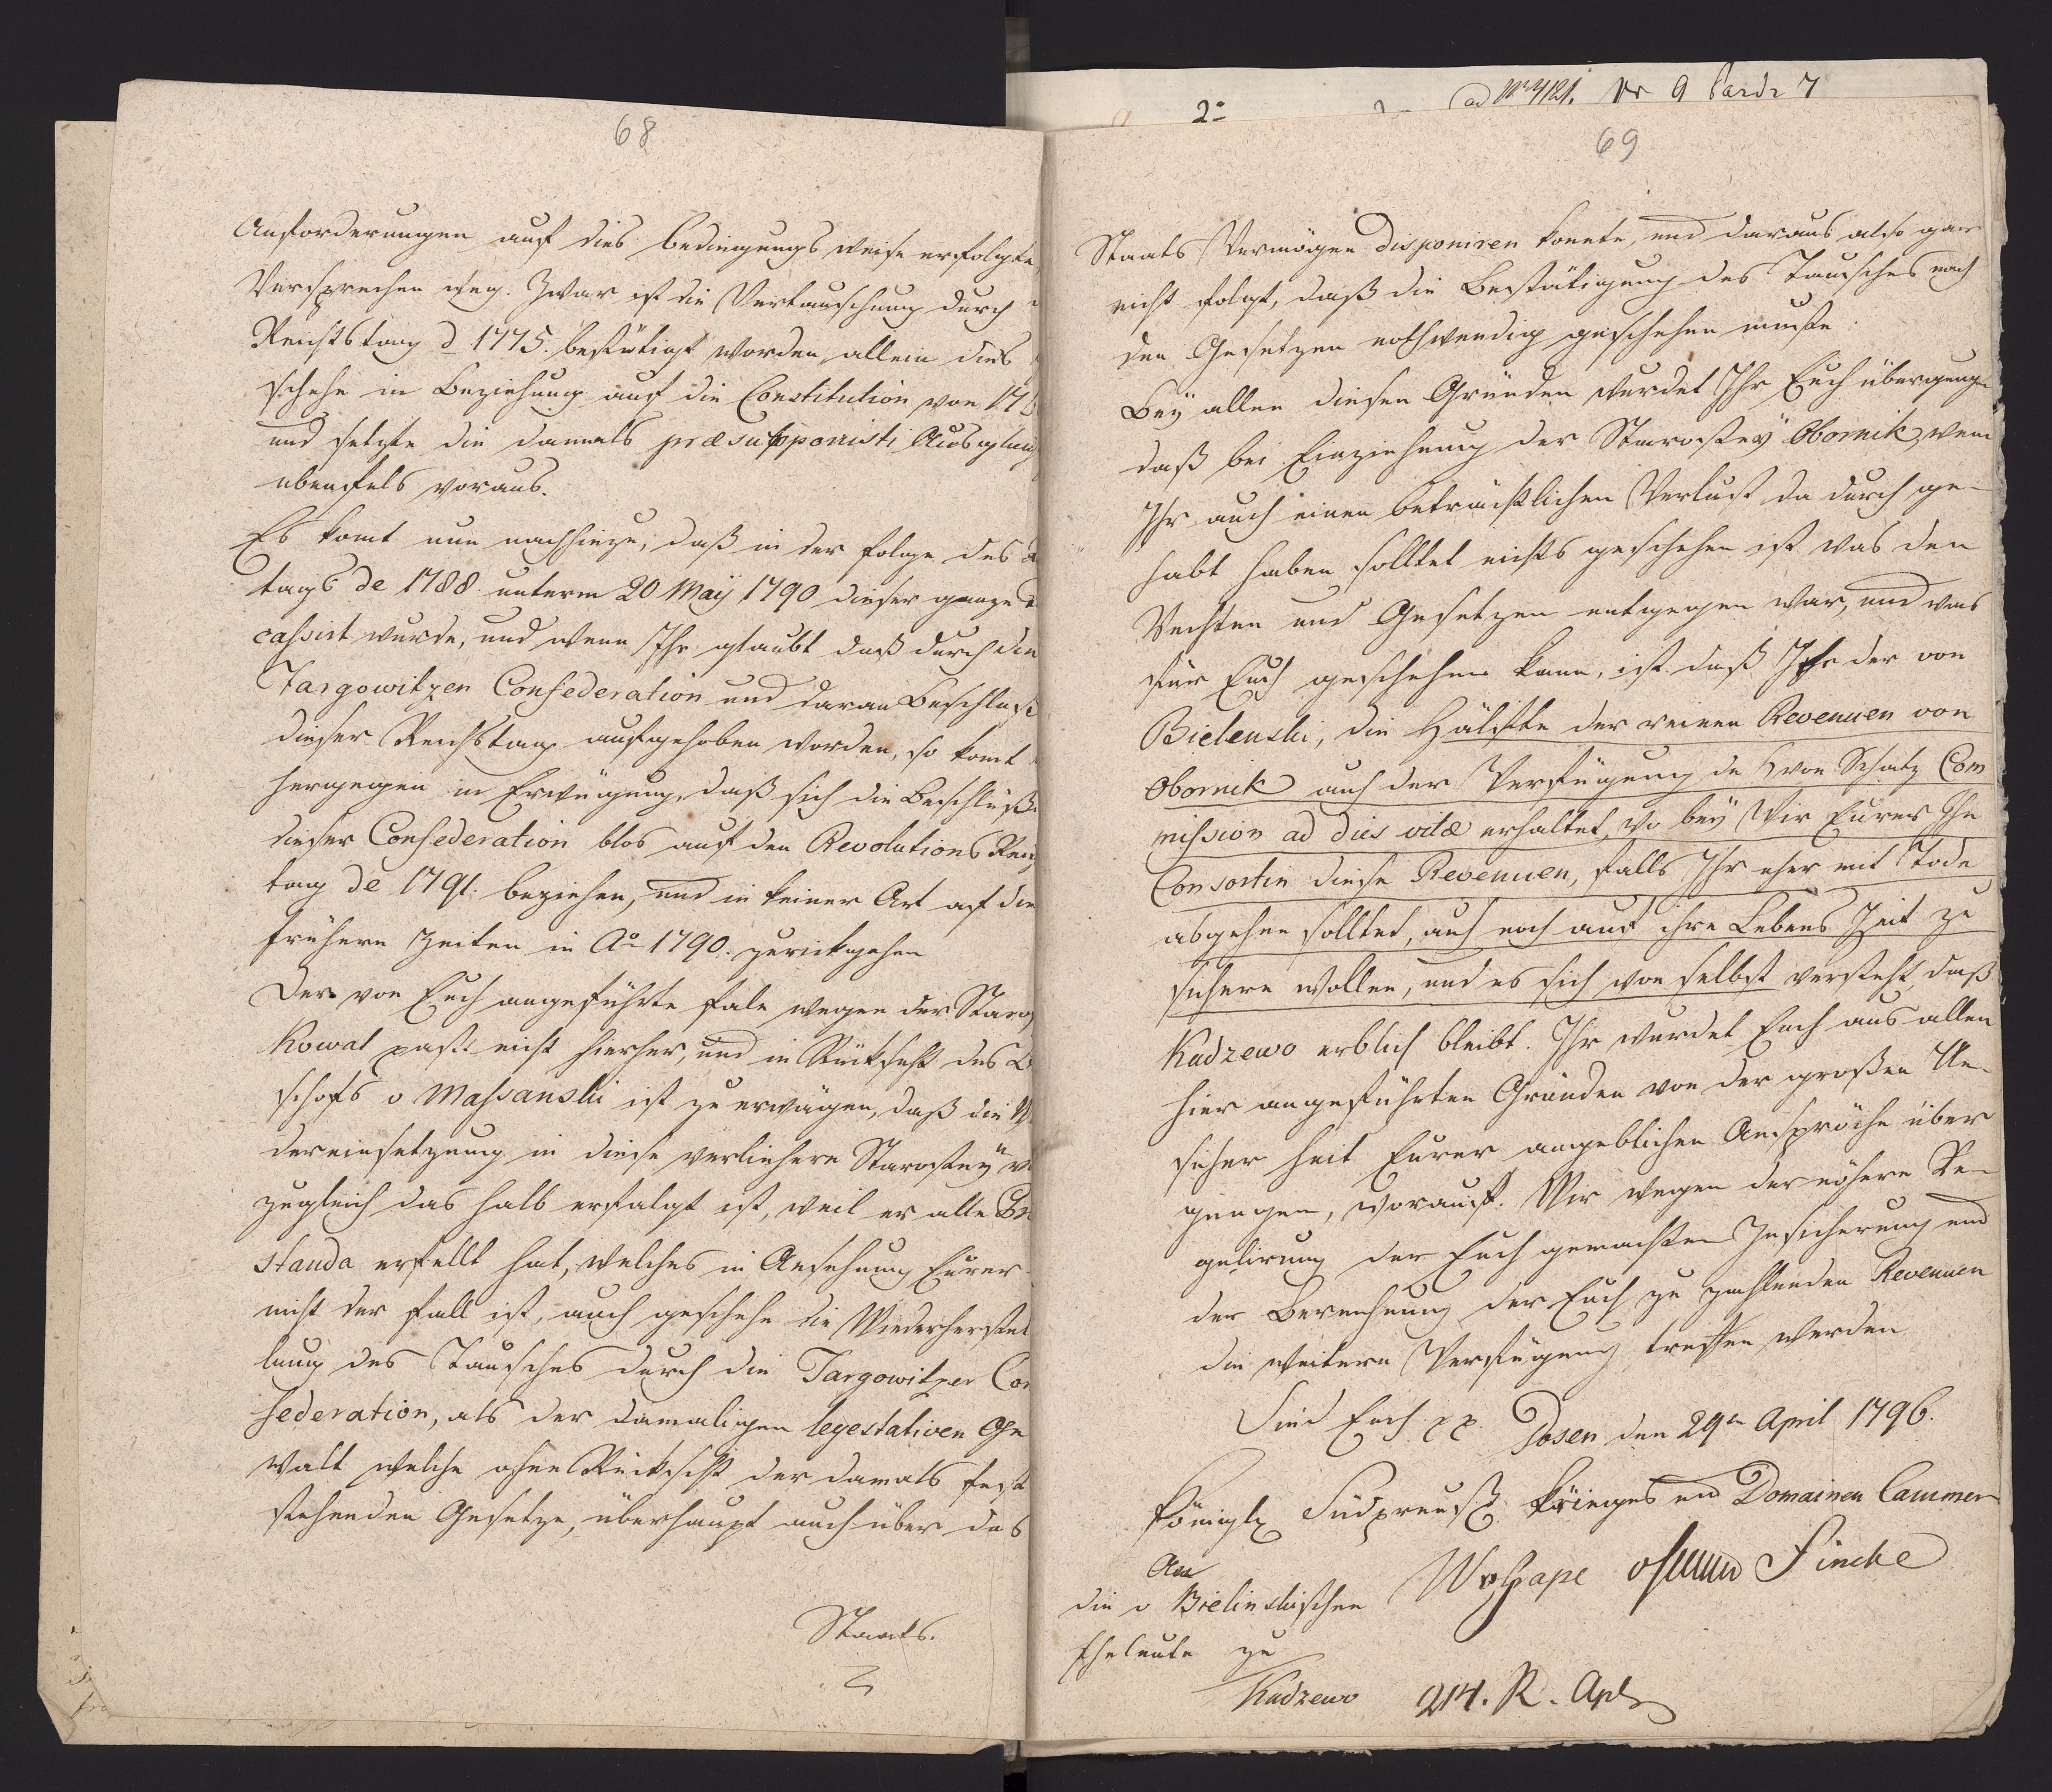 68
Anforderungen auf dies bedingungs weise erfolgte
Versprechen weg. Zwar ist die Vertauschung durch
Reichstag d 1775. bestätigt worden, allein dies
schehe in Beziehung auf die Constitution von 17
und setzte die damals præsupponirte
ebenfals voraus.
Es komt nun nachhinzu, daß in der Folge des
tags de 1788. unterm 20 May 1790 dieser ganze
cassirt wurde, und wenn Ihr glaubt daß durch die
Targowitzen Confederation und daran Beschluß
dieser Reichstag aufgehoben worden, so komt
hergegen in Erwägung, daß sich die Beschlüße
dieser Confederation blos auf den Revolutions Reichs
tag de 1791. beziehen, und in keiner Art auf die
frühern Zeiten in Ao 1790. zurickgehen
Der von Euch angeführte Fale wegen der Staros
Kowal past nicht hierher, und in Rüksicht des Bi
schofs v Massanski ist zu erwägen, daß die Wie
dereinsetzung in diese verliehene Starostey
zugleich das halb erfolgt ist, weil er alle Præ
standa erfellt hat, welches in Ansehung Eurer
nicht der Fall ist, auch geschehe die Wiederherstel
lung des Tausches durch die Targowitzer Con
federation, als der damaligen legestativen Ge
walt welche ohne Rücksicht der damals fest
stehenden Gesetze, überhaupt auch über das
Staats.
2
ad No 4121. 9 7
69
Staats Vermögen disponiren konnte, und daraus also gar
nicht folgt, daß die Bestätigung des Tausches nach
den Gesetzen nothwendig geschehen muste
Bey allen diesen Gründen werdet Ihr Euch überzeugen
daß bei Einziehung der Starostey Obornik, wenn
Ihr auch einen beträchtlichen Verlust da durch ge-
habt haben solltet nichts geschehen ist was den
Rechten und Gesetzen entgegen war, und was
für Euch geschehen kann, ist daß Ihr der von
Bielenski, die Hälfte der reinen Revenuen von
Obornik nach der Verfügung de von Schatz Com
mission ad dies vitæ erhaltet, wo bey Wir Eurer Ehe
Consortin diese Revenuen, falls Ihr eher mit Tode
abgehen solltet, auch noch auf ihre Lebens Zeit zu
sichern wollen, und es sich von selbst versteht, daß
Kadzewo erblich bleibt. Ihr werdet Euch aus allen
hier angeführten Gründen von der großen Un-
sicher heit Eurer angeblichen Ansprüche über
zeugen, worauf Wir wegen der nähern Re-
gulirung der Euch gemachten Zusicherung und
der Berechnung der Euch zu zahlenden Revenuen
die weitere Verfügung treffen werden
Sind Euch pp. Posen den 29en April 1796.
Königl Südpreuß. Krieges und Domainen Cammer
An
die v Bielinskischen
Eheleute zu
Kadzewo
Fincke
914. R. Apl